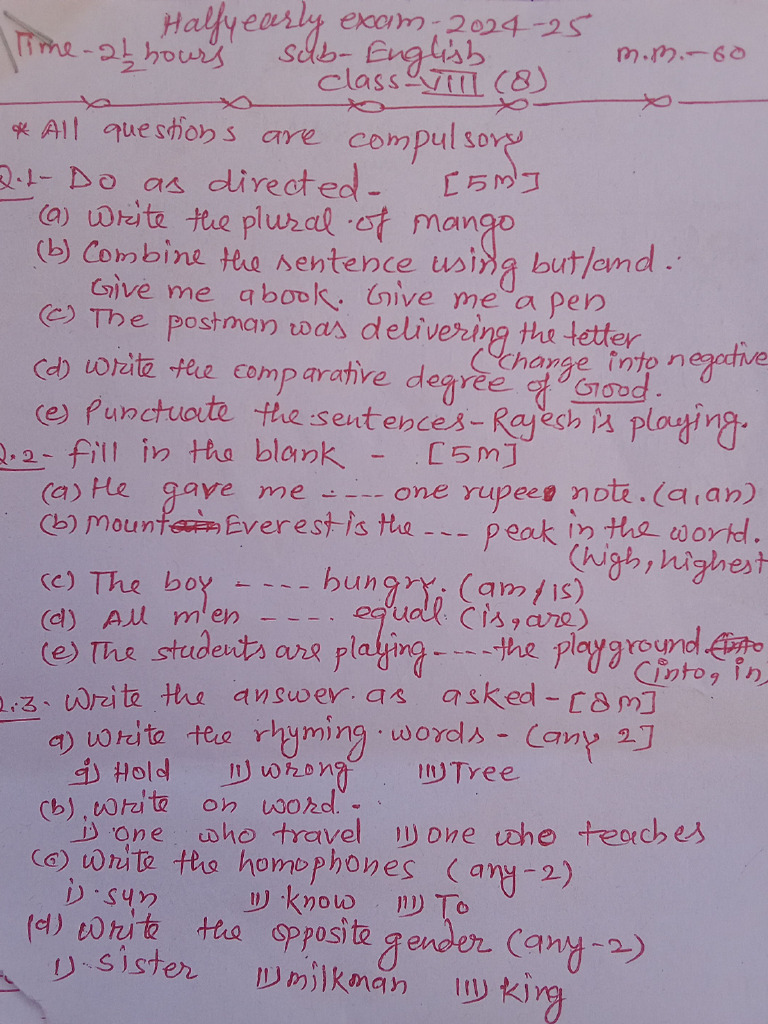 Halfyearly exam-2024-25
Time-2½ hours Sub-English m.m.-60
class-VIII (8)
* All questions are compulsory
Q.1- Do as directed- [5m]
(a) Write the plural of mango
(b) Combine the sentence using but/and.
Give me a book. Give me a pen
(c) The postman was delivering the letter
(Change into negative
(d) write the comparative degree of Good.
(e) Punctuate the sentences- Rajesh is playing.
Q.2- fill in the blank - [5m]
(a) He gave me ---- one rupee note. (a, an)
(b) Mount Everest is the --- peak in the world.
(high, highest
(c) The boy ---- hungry. (am/is)
(d) All men ---- equal. (is, are)
(e) The students are playing ---- the playground.
(into, in)
Q.3. Write the answer as asked- [8m]
a) Write the rhyming words - (any 2]
i) Hold ii) wrong iii) Tree
(b) write on word.-
i) one who travel ii) one who teaches
(c) Write the homophones (any-2)
i) sun ii) know iii) To
(d) Write the opposite gender (any-2)
i) sister ii) milkman iii) King